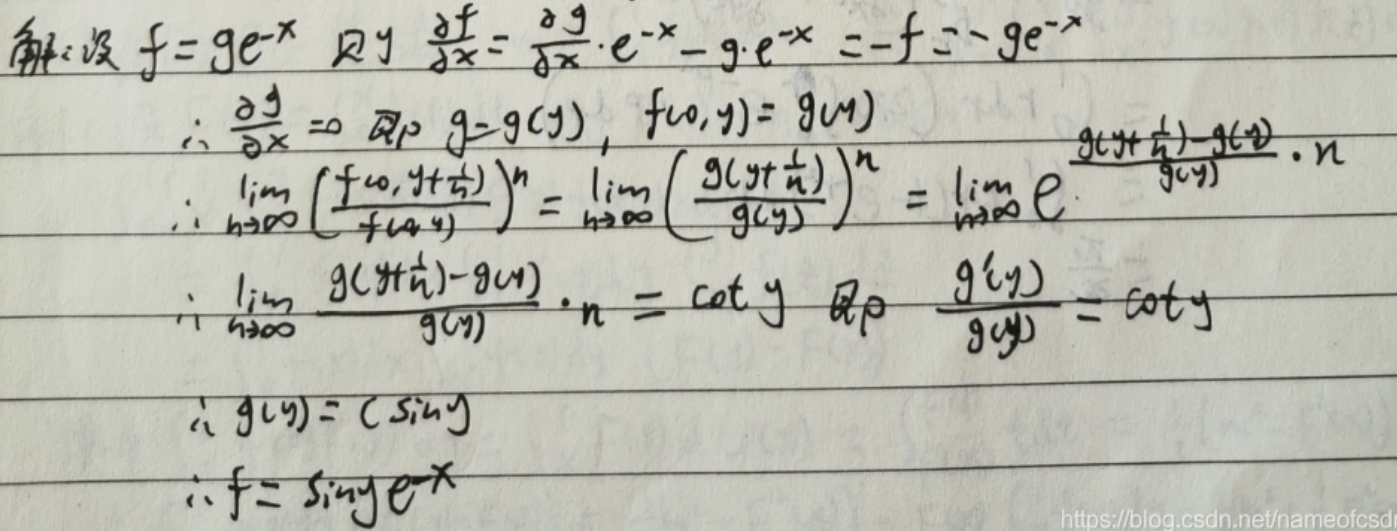 解:设 f = ge^{-x} 则 ∂f/∂x = ∂g/∂x · e^{-x} - g·e^{-x} = -f = -ge^{-x}
∴ ∂g/∂x = 0 即 g = g(y), f(0,y) = g(y)
∴ lim_{n→∞} (f(0,y+1/n)/f(0,y))^n = lim_{n→∞} (g(y+1/n)/g(y))^n = lim_{n→∞} e^{(g(y+1/n)-g(y))/g(y) · n}
∴ lim_{n→∞} (g(y+1/n)-g(y))/g(y) · n = cot y 即 g'(y)/g(y) = cot y
∴ g(y) = C sin y
∴ f = sin y e^{-x}
https://blog.csdn.net/nameofcsdn